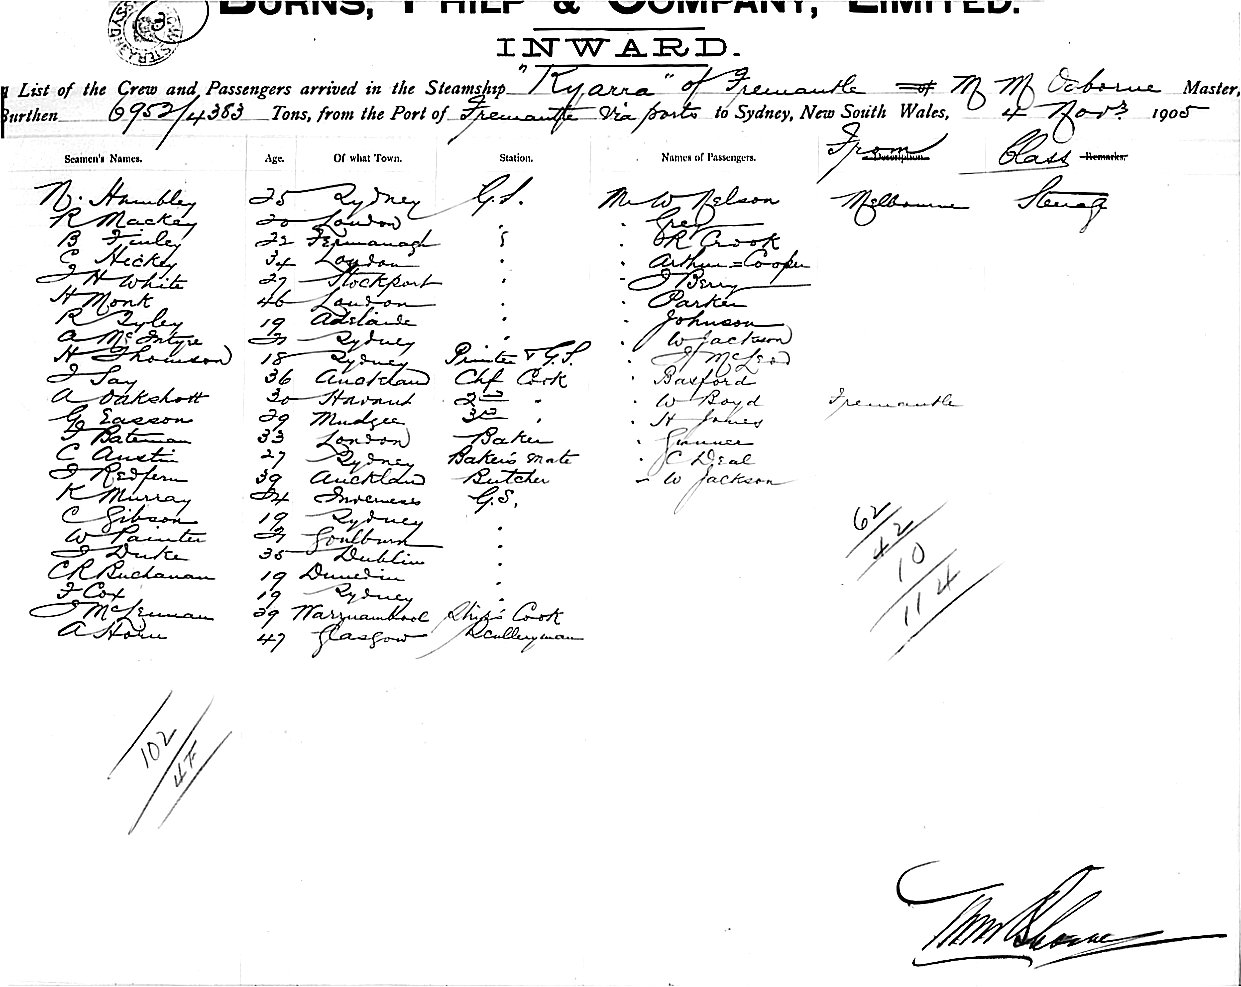 BURNS, PHILP & COMPANY, LIMITED.
INWARD.
List of the Crew and Passengers arrived in the Steamship "Kyarra" of Fremantle of M M Osborne Master,
Burthen 6952/4383 Tons, from the Port of Fremantle Via ports to Sydney, New South Wales, 4 Novr 1905
Seamen's Names. Age. Of what Town. Station. Names of Passengers. From Description. Class Remarks.
N. Hambley 25 Sydney G.S. Mr W Nelson Melbourne Steerag
R Mackey 20 London " Grey
B Finley 22 Fermanagh " R Crook
C Hickey 34 London " Arthur Cooper
J H White 27 Stockport " J Berry
H Monk 46 London " Parker
R Ryley 19 Adelaide " Johnson
A McIntyre 21 Sydney " W Jackson
H Thomson 18 Sydney Printer & G.S. " J McLeod
J Say 36 Auckland Chf Cook " Basford
A Oakshott 30 Havant 2nd " " W Boyd Fremantle
G Easson 29 Mudgee 3rd " " H Jones
F Bateman 33 London Baker " Gunner
C Austin 27 Sydney Baker's Mate " C Deal
J Redfern 39 Auckland Butcher " W Jackson
K Murray 24 Inverness G.S.
C Gibson 19 Sydney "
W Painter 21 Goulburn "
J Duke 35 Dublin "
CR Buchanan 19 Dunedin "
F Cox 19 Sydney "
J McLennan 29 Warrnambool Ship's Cook
A Horn 47 Glasgow Sculleryman
62
42
10
114
102
47